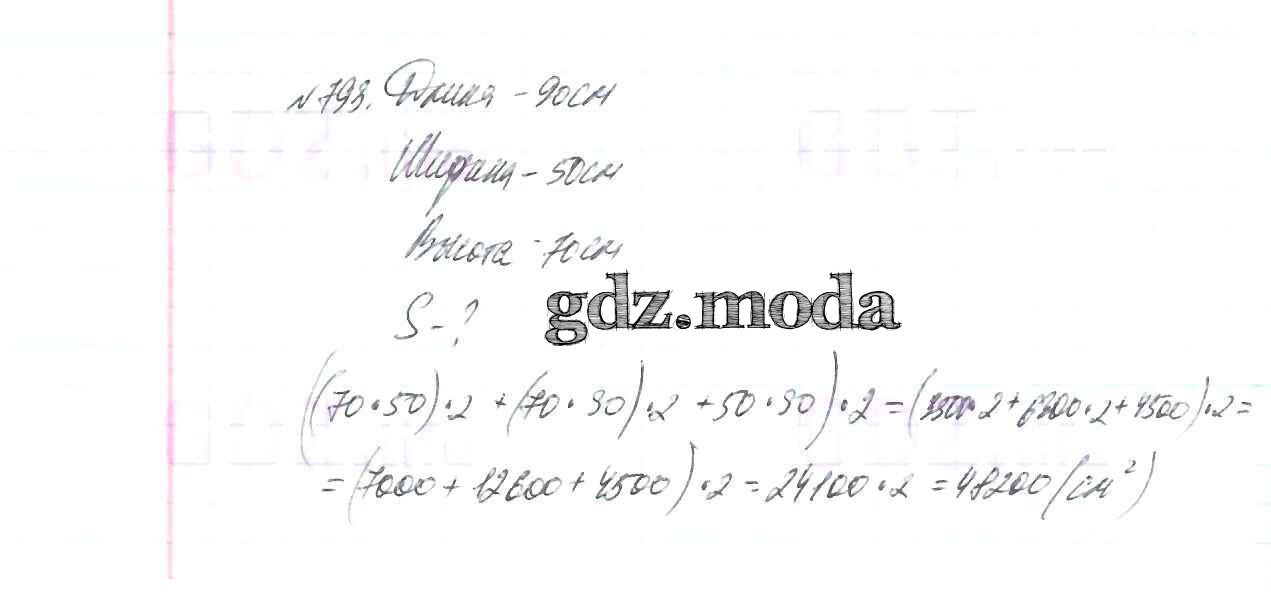 № 793. Длина - 90 см
Ширина - 50 см
Высота - 70 см
S - ?
gdz.moda
((70 · 50) · 2 + (70 · 90) · 2 + 50 · 90) · 2 = (3500 · 2 + 6300 · 2 + 4500) · 2 =
= (7000 + 12600 + 4500) · 2 = 24100 · 2 = 48200 (см²)